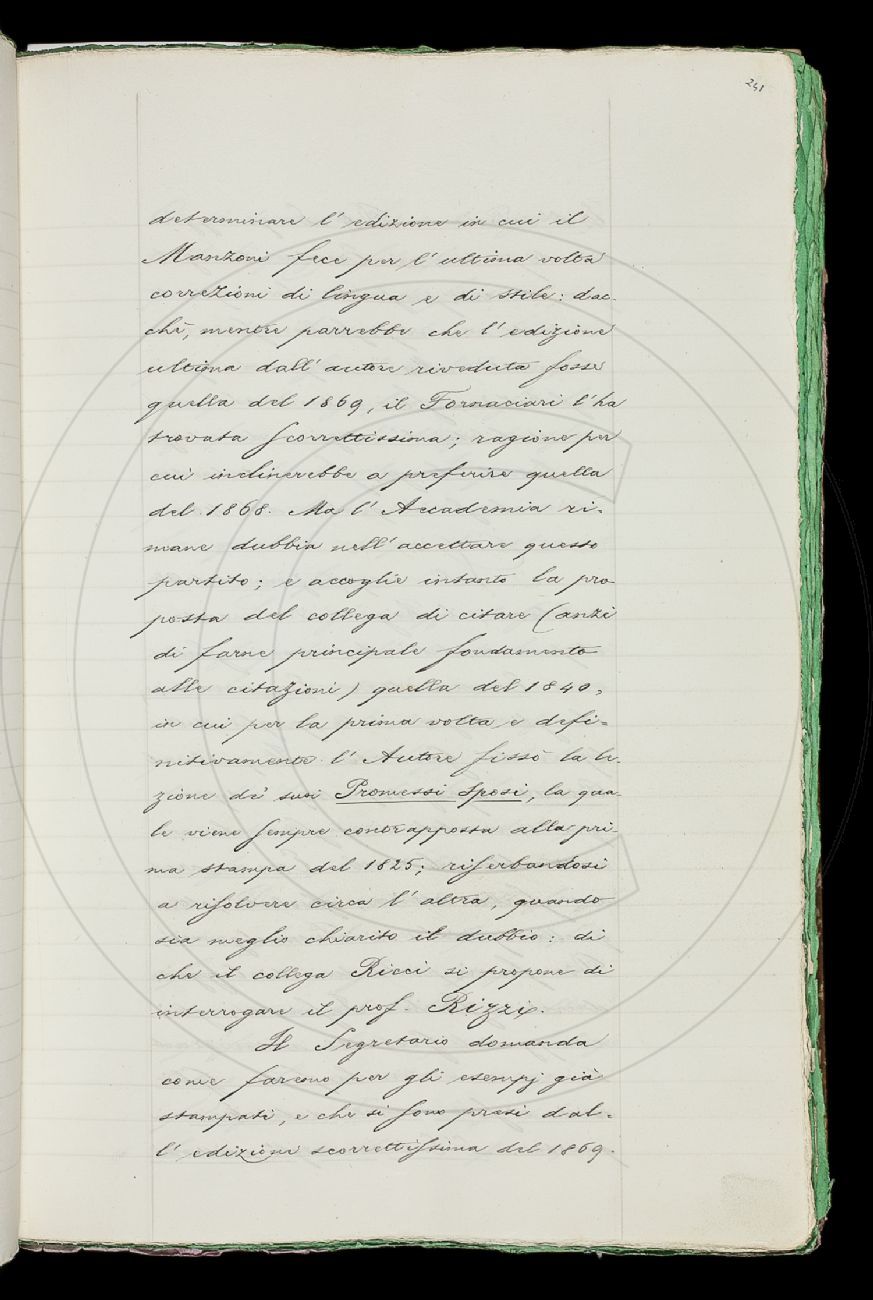 241
determinare l' edizione in cui il
Manzoni fece per l' ultima volta
correzioni di lingua e di stile: dac-
chè, mentre parrebbe che l' edizione
ultima dall' autore riveduta fosse
quella del 1869, il Fornaciari l' ha
trovata scorrettissima; ragione per
cui inclinerebbe a preferire quella
del 1868. Ma l' Accademia ri-
mane dubbia nell' accettare questo
partito; e accoglie intanto la pro-
posta del collega di citare (anzi
di farne principale fondamento
alle citazioni) quella del 1840,
in cui per la prima volta e defi-
nitivamente l' Autore fissò la le-
zione de' suoi Promessi Sposi, la qua-
le viene sempre contrapposta alla pri-
ma stampa del 1825; riserbandosi
a risolvere circa l' altra, quando
sia meglio chiarito il dubbio: di
che il collega Ricci si propone di
interrogare il prof. Rizzi.
Il Segretario domanda
come faremo per gli esempj già
stampati, e che si sono presi dal-
l' edizione scorrettissima del 1869.